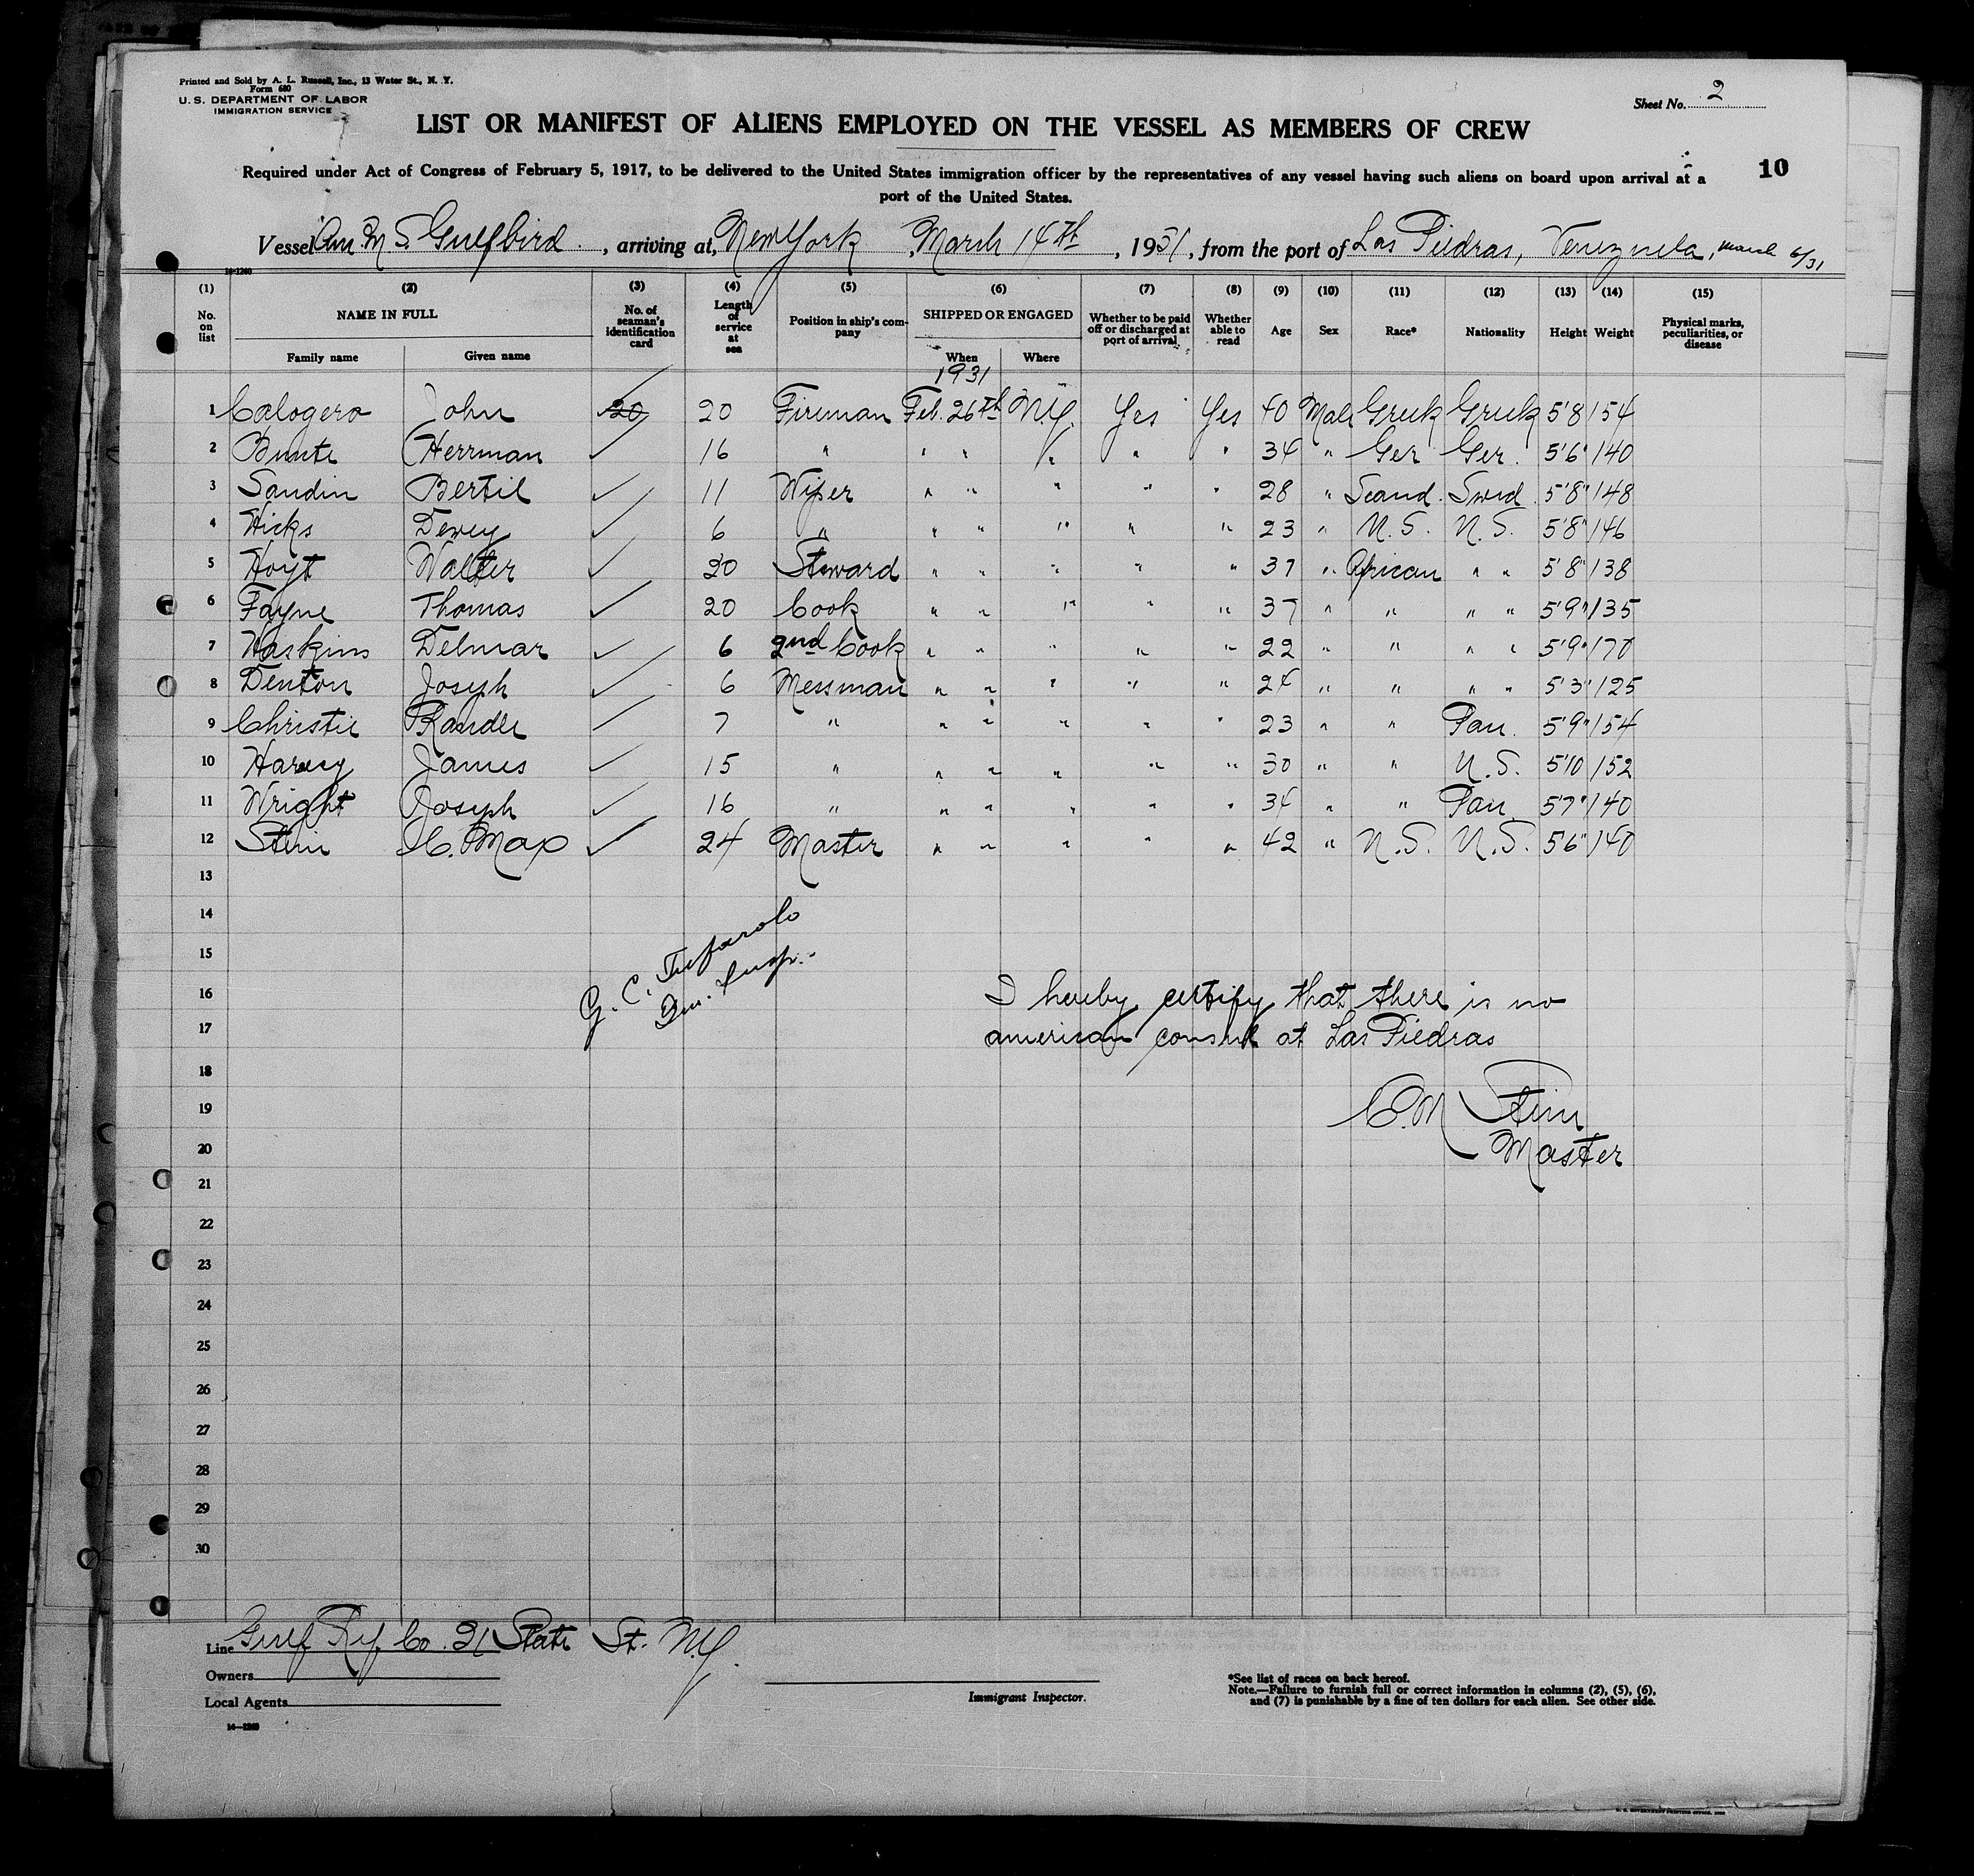 Printed and Sold by A. L. Russell, Inc., 13 Water St., N. Y.
Form 680
U. S. DEPARTMENT OF LABOR
IMMIGRATION SERVICE
Sheet No. 2
LIST OR MANIFEST OF ALIENS EMPLOYED ON THE VESSEL AS MEMBERS OF CREW
10
Required under Act of Congress of February 5, 1917, to be delivered to the United States immigration officer by the representatives of any vessel having such aliens on board upon arrival at a
port of the United States.
Vessel Am. M S. Gulfbird, arriving at, New York, March 14th, 1931, from the port of Las Piedras, Venezuela, march 6/31
14-1240
(1) (2) (3) (4) (5) (6) (7) (8) (9) (10) (11) (12) (13) (14) (15)
No. on list NAME IN FULL No. of seaman's identification card Length of service at sea Position in ship's company SHIPPED OR ENGAGED Whether to be paid off or discharged at port of arrival Whether able to read Age Sex Race* Nationality Height Weight Physical marks, peculiarities, or disease
Family name Given name When Where
1931
1 Calogero John 20 20 Fireman Feb. 26th N.Y. Yes Yes 40 Male Greek Greek 5'8 154
2 Bunte Herrman ✓ 16 " " " " " " 34 " Ger Ger. 5'6" 140
3 Sandin Bertil ✓ 11 Wiper " " " " " 28 " Scand. Swed. 5'8" 148
4 Hicks Dewey ✓ 6 " " " " " " 23 " U.S. U.S. 5'8" 146
5 Hoyt Walter ✓ 20 Steward " " " " " 37 " African " " 5'8" 138
6 Fayne Thomas ✓ 20 Cook " " " " " 37 " " " " 5'9" 135
7 Haskins Delmar ✓ 6 2nd Cook " " " " " 22 " " " " 5'9" 170
8 Denton Joseph ✓ 6 Messman " " " " " 24 " " " " 5'3" 125
9 Christie 7 " " " " " " 23 " " Pan. 5'9" 154
10 Harvey James ✓ 15 " " " " " " 30 " " U.S. 5'10 152
11 Wright Joseph ✓ 16 " " " " " " 34 " " Pan. 5'7" 140
12 Stein C. Max ✓ 24 Master " " " " " 42 " U.S. U.S. 5'6" 140
13
14
15
G. C.
Im. Insp.
16
I hereby certify that there is no
17
american consul at Las Piedras
18
19
C. M Stein
20
Master
21
22
23
24
25
26
27
28
29
30
Line Gulf Ref. Co. 21 State St. N.Y.
Owners
Local Agents
Immigrant Inspector.
*See list of races on back hereof.
Note.—Failure to furnish full or correct information in columns (2), (5), (6),
and (7) is punishable by a fine of ten dollars for each alien. See other side.
14—1240